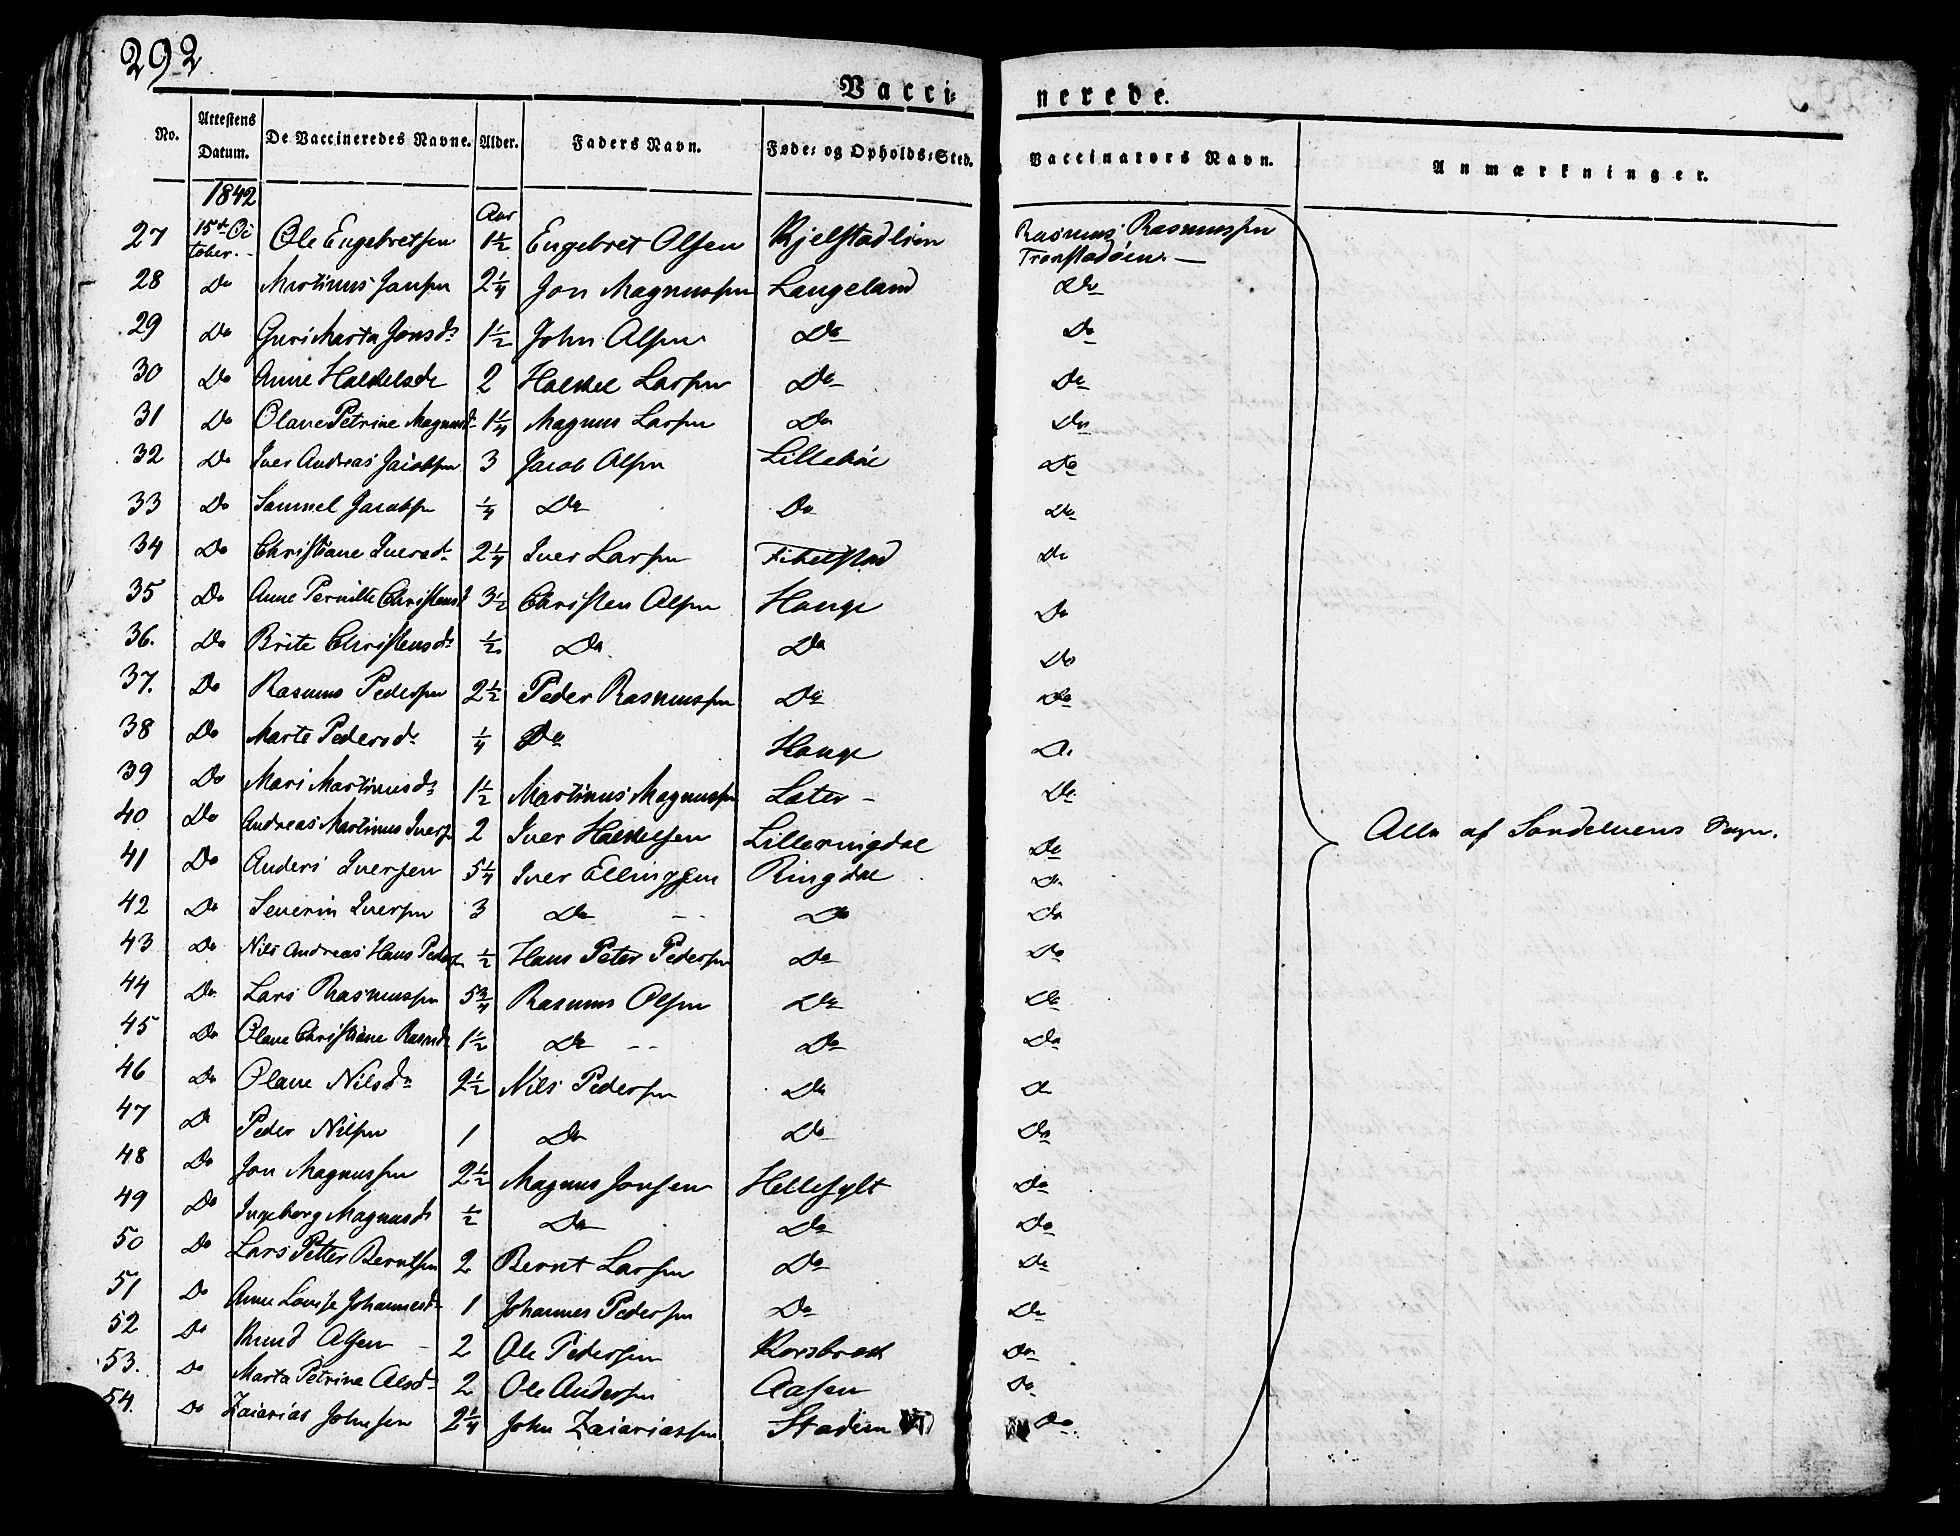 292
Vacci-
nerede.
No. Attestens Datum. De Vaccineredes Navne. Alder. Faders Navn. Føde- og Opholds-Sted. Vaccinatørs Navn. Anmærkninger.
1842
27 15de October. Ole Engebretsen Aar 1½ Engebret Olsen Kjelstadlien Rasmus Rasmussen Tronstadøien
28 Do Martinus Jonsen 2¼ Jon Magnussen Langeland Do
29 Do Guri Marta Jonsdr 1½ John Olsen Do Do
30 Do Anne Halkelsdr 2 Halkel Larsen Do Do
31 Do Olane Petrine Magnusd. 1¼ Magnus Larsen Do Do
32 Do Iver Andreas Jacobsen 3 Jacob Olsen Lillebøe Do
33 Do Samuel Jacobsen ¼ Do Do Do
34 Do Christiane Iversdr 2¼ Iver Larsen Fibelstad Do
35 Do Anne Pernille Christensd 3½ Christen Olsen Hauge Do
36. Do Brite Christensdr ½ Do Do Do
37. Do Rasmus Pedersen 2½ Peder Rasmussen Do Do
38 Do Marte Pedersdr ¼ Do Hauge Do
39 Do Mari Martinusdr 1½ Martinus Magnussen Løter Do
40 Do Andreas Martinus Iversen 2 Iver Halkelsen Lilleringdal Do
41 Do Anders Iversen 5¼ Iver Ellingsen Ringdal Do
42 Do Severin Iversen 3 Do Do Do
43 Do Nils Andreas Hans Peders. ½ Hans Peter Pedersen Do Do
44 Do Lars Rasmussen 5¾ Rasmus Olsen Do Do
45 Do Olave Christiane Rasmd. 1½ Do Do Do
46 Do Olave Nilsdr 2½ Nils Pedersen Do Do
47 Do Peder Nilsen 1 Do Do Do
48 Do Jon Magnussen 2½ Magnus Jonsen Hellesylt Do
49 Do Ingeborg Magnusd. ½ Do Do Do
50 Do Lars Petter Berntsen 2 Bernt Larsen Do Do
51 Do Anne Lovise Johannesdr 1 Johannes Pedersen Do Do
52 Do Knud Olsen 2 Ole Pedersen Korsbræk Do
53. Do Marta Petrine Olsdr 2 Ole Andersen Aasen Do
54. Do Zacarias Johnsen 2¼ John Zacariassen Stadim Do
Alle af Søndelvens Sogn.